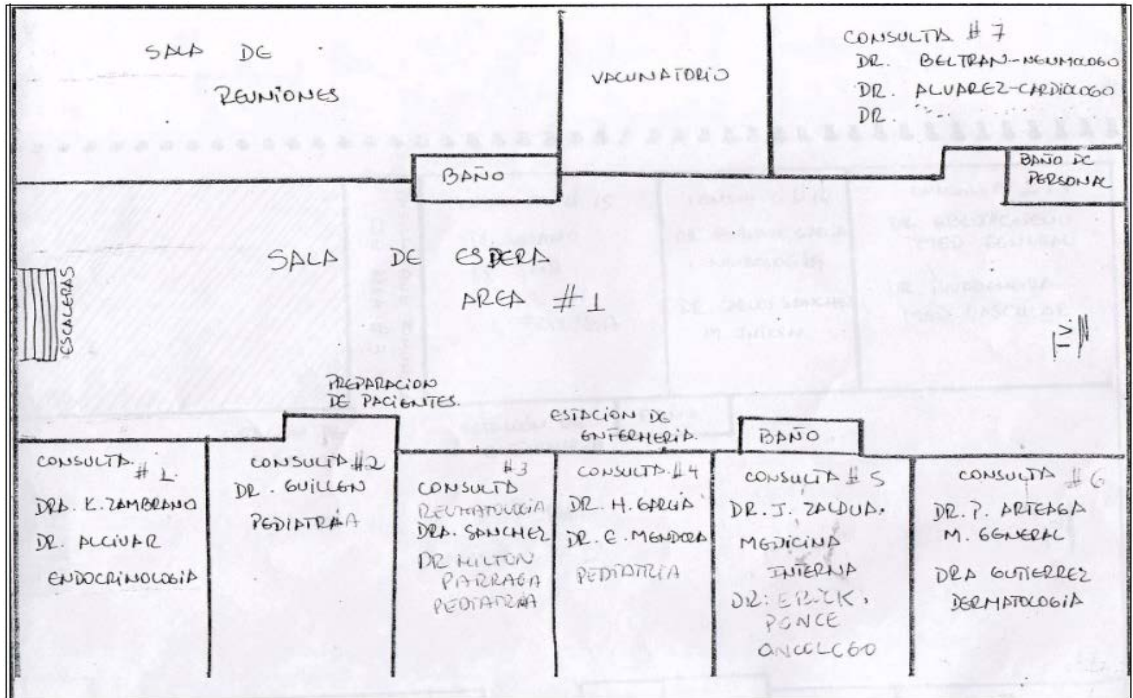 SALA DE
REUNIONES
VACUNATORIO
CONSULTA # 7
DR. BELTRAN-NEUMOLOGO
DR. ALVAREZ-CARDIOLOGO
DR. .......
BAÑO
BAÑO DE
PERSONAL
ESCALERAS
SALA DE ESPERA
AREA #1
TV
PREPARACION
DE PACIENTES.
ESTACION DE
ENFERMERIA.
BAÑO
CONSULTA.
# 1.
DRA. K. ZAMBRANO
DR. ALCIVAR
ENDOCRINOLOGIA
CONSULTA #2
DR. GUILLEN
PEDIATRIA
#3
CONSULTA
REUMATOLOGIA
DRA. SANCHEZ
DR MILTON
PARRAGA
PEDIATRIA
CONSULTA. #4
DR. H. GARCIA
DR. C. MENDOZA
PEDIATRIA
CONSULTA # 5
DR. J. ZALDUA.
MEDICINA
INTERNA
DR: ERICK.
PONCE
ONCOLOGO
CONSULTA # 6
DR. P. ARTEAGA
M. GENERAL
DRA GUTIERREZ
DERMATOLOGIA